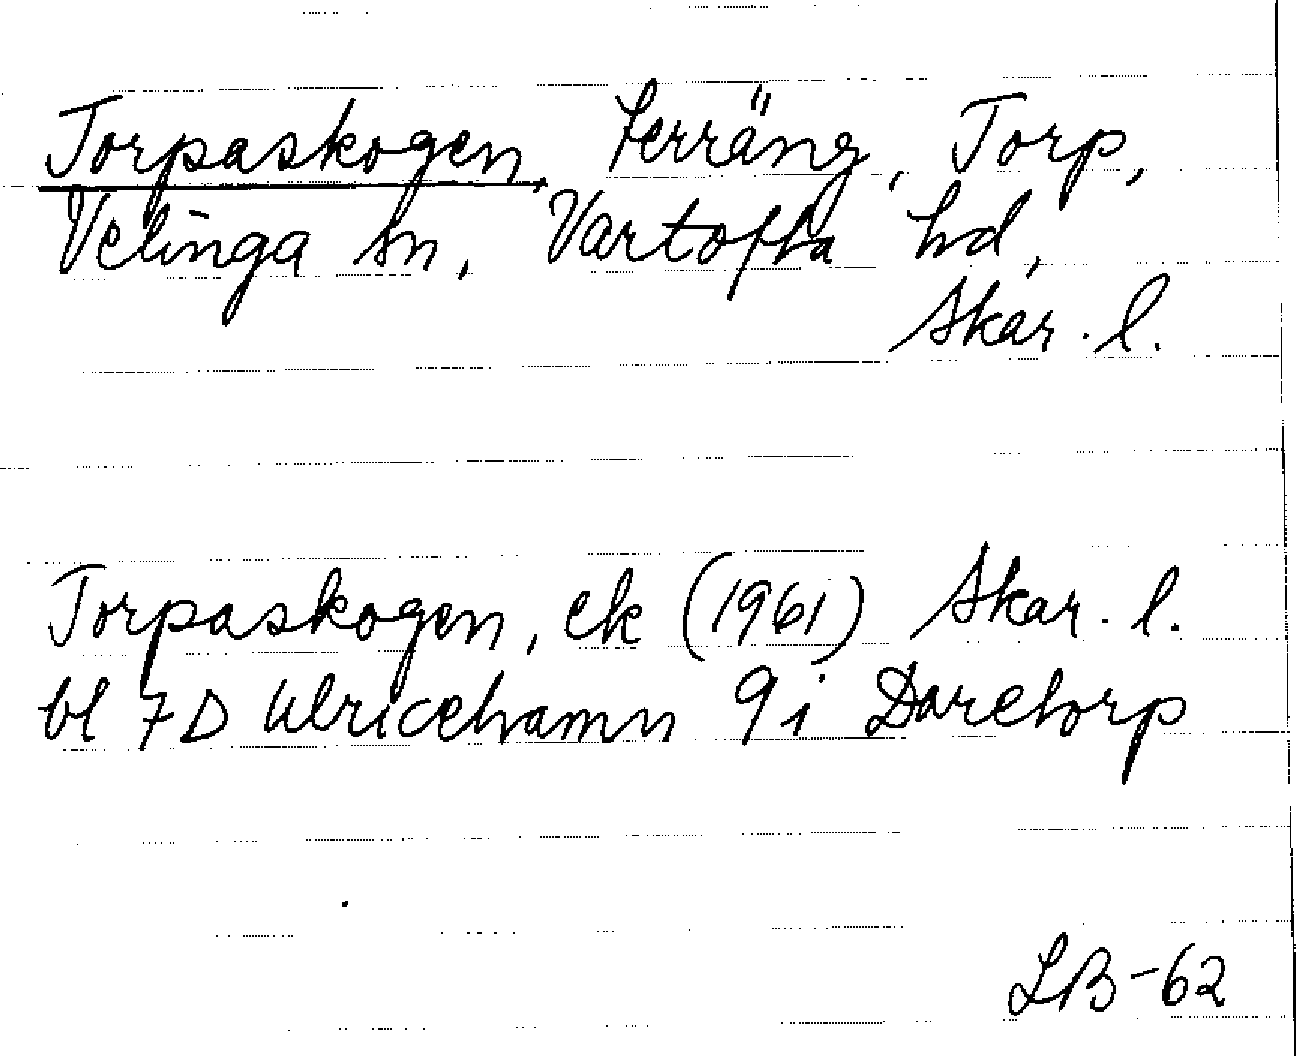 Torpaskogen, terräng, Torp,
Velinga sn, Vartofta hd,
Skar. l.
Torpaskogen, ek (1961) Skar. l.
bl 7D Ulricehamn 9i Daretorp
LB-62